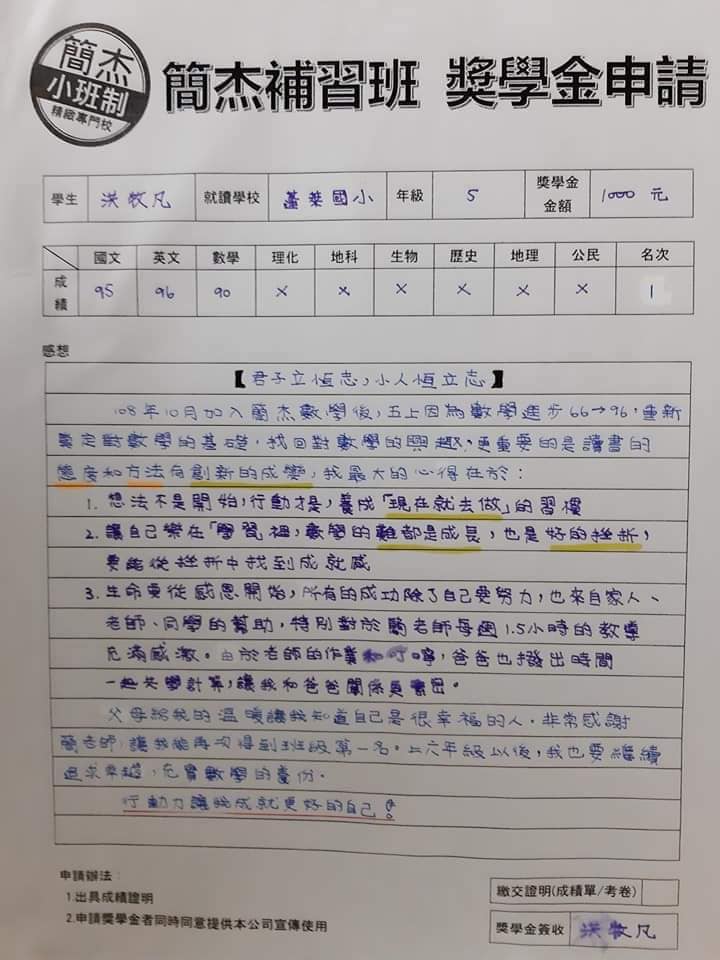 簡杰
小班制
精緻專門校
簡杰補習班 獎學金申請
學生 洪牧凡 就讀學校 蓬萊國小 年級 5 獎學金金額 1000 元
國文 英文 數學 理化 地科 生物 歷史 地理 公民 名次
成績 95 96 90 X X X X X X 1
感想
【君子立恆志,小人恆立志】
108年10月加入簡杰數學後,五上因為數學進步66→96,重新
奠定對數學的基礎,找回對數學的興趣,更重要的是讀書的
態度和方法有創新的改變,我最大的心得在於:
1. 想法不是開始,行動才是,養成「現在就去做」的習慣
2. 讓自己樂在「學習」裡,數學的難都是成長,也是好的挫折,
要能從挫折中找到成就感
3. 生命要從感恩開始,所有的成功除了自己要努力,也來自家人、
老師、同學的幫助,特別對於簡老師每週1.5小時的教導
充滿感激。由於老師的作業和叮嚀,爸爸也撥出時間
一起共學計算,讓我和爸爸關係更密。
父母給我的溫暖讓我知道自己是很幸福的人。非常感謝
簡老師,讓我能再次得到班級第一名。上六年級以後,我也要繼續
追求卓越,充實數學的養份。
行動力讓我成就更好的自己!
申請辦法:
1.出具成績證明
2.申請獎學金者同時同意提供本公司宣傳使用
繳交證明(成績單/考卷)
獎學金簽收 洪牧凡